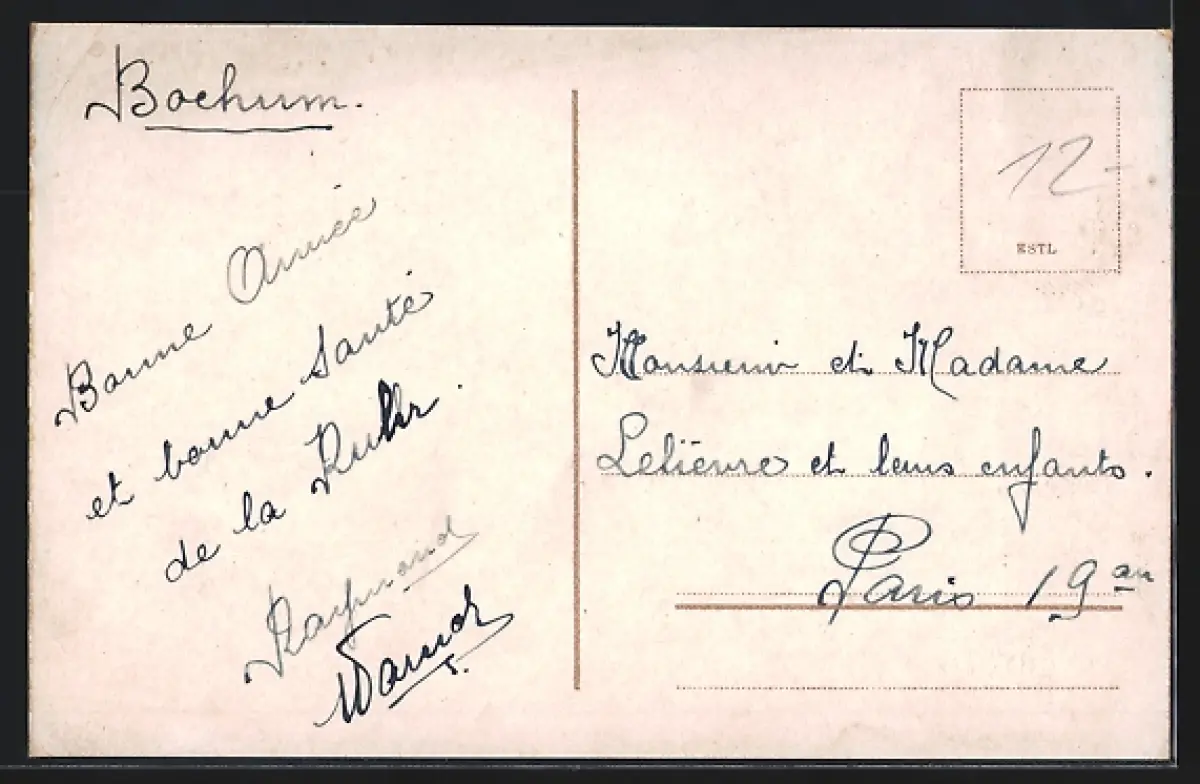 Bochum.
Bonne Année
et bonne Santé
de la Ruhr.
Raymond
12-
ESTL
Monsieur et Madame
Lelièvre et leurs enfants.
Paris 19 arr